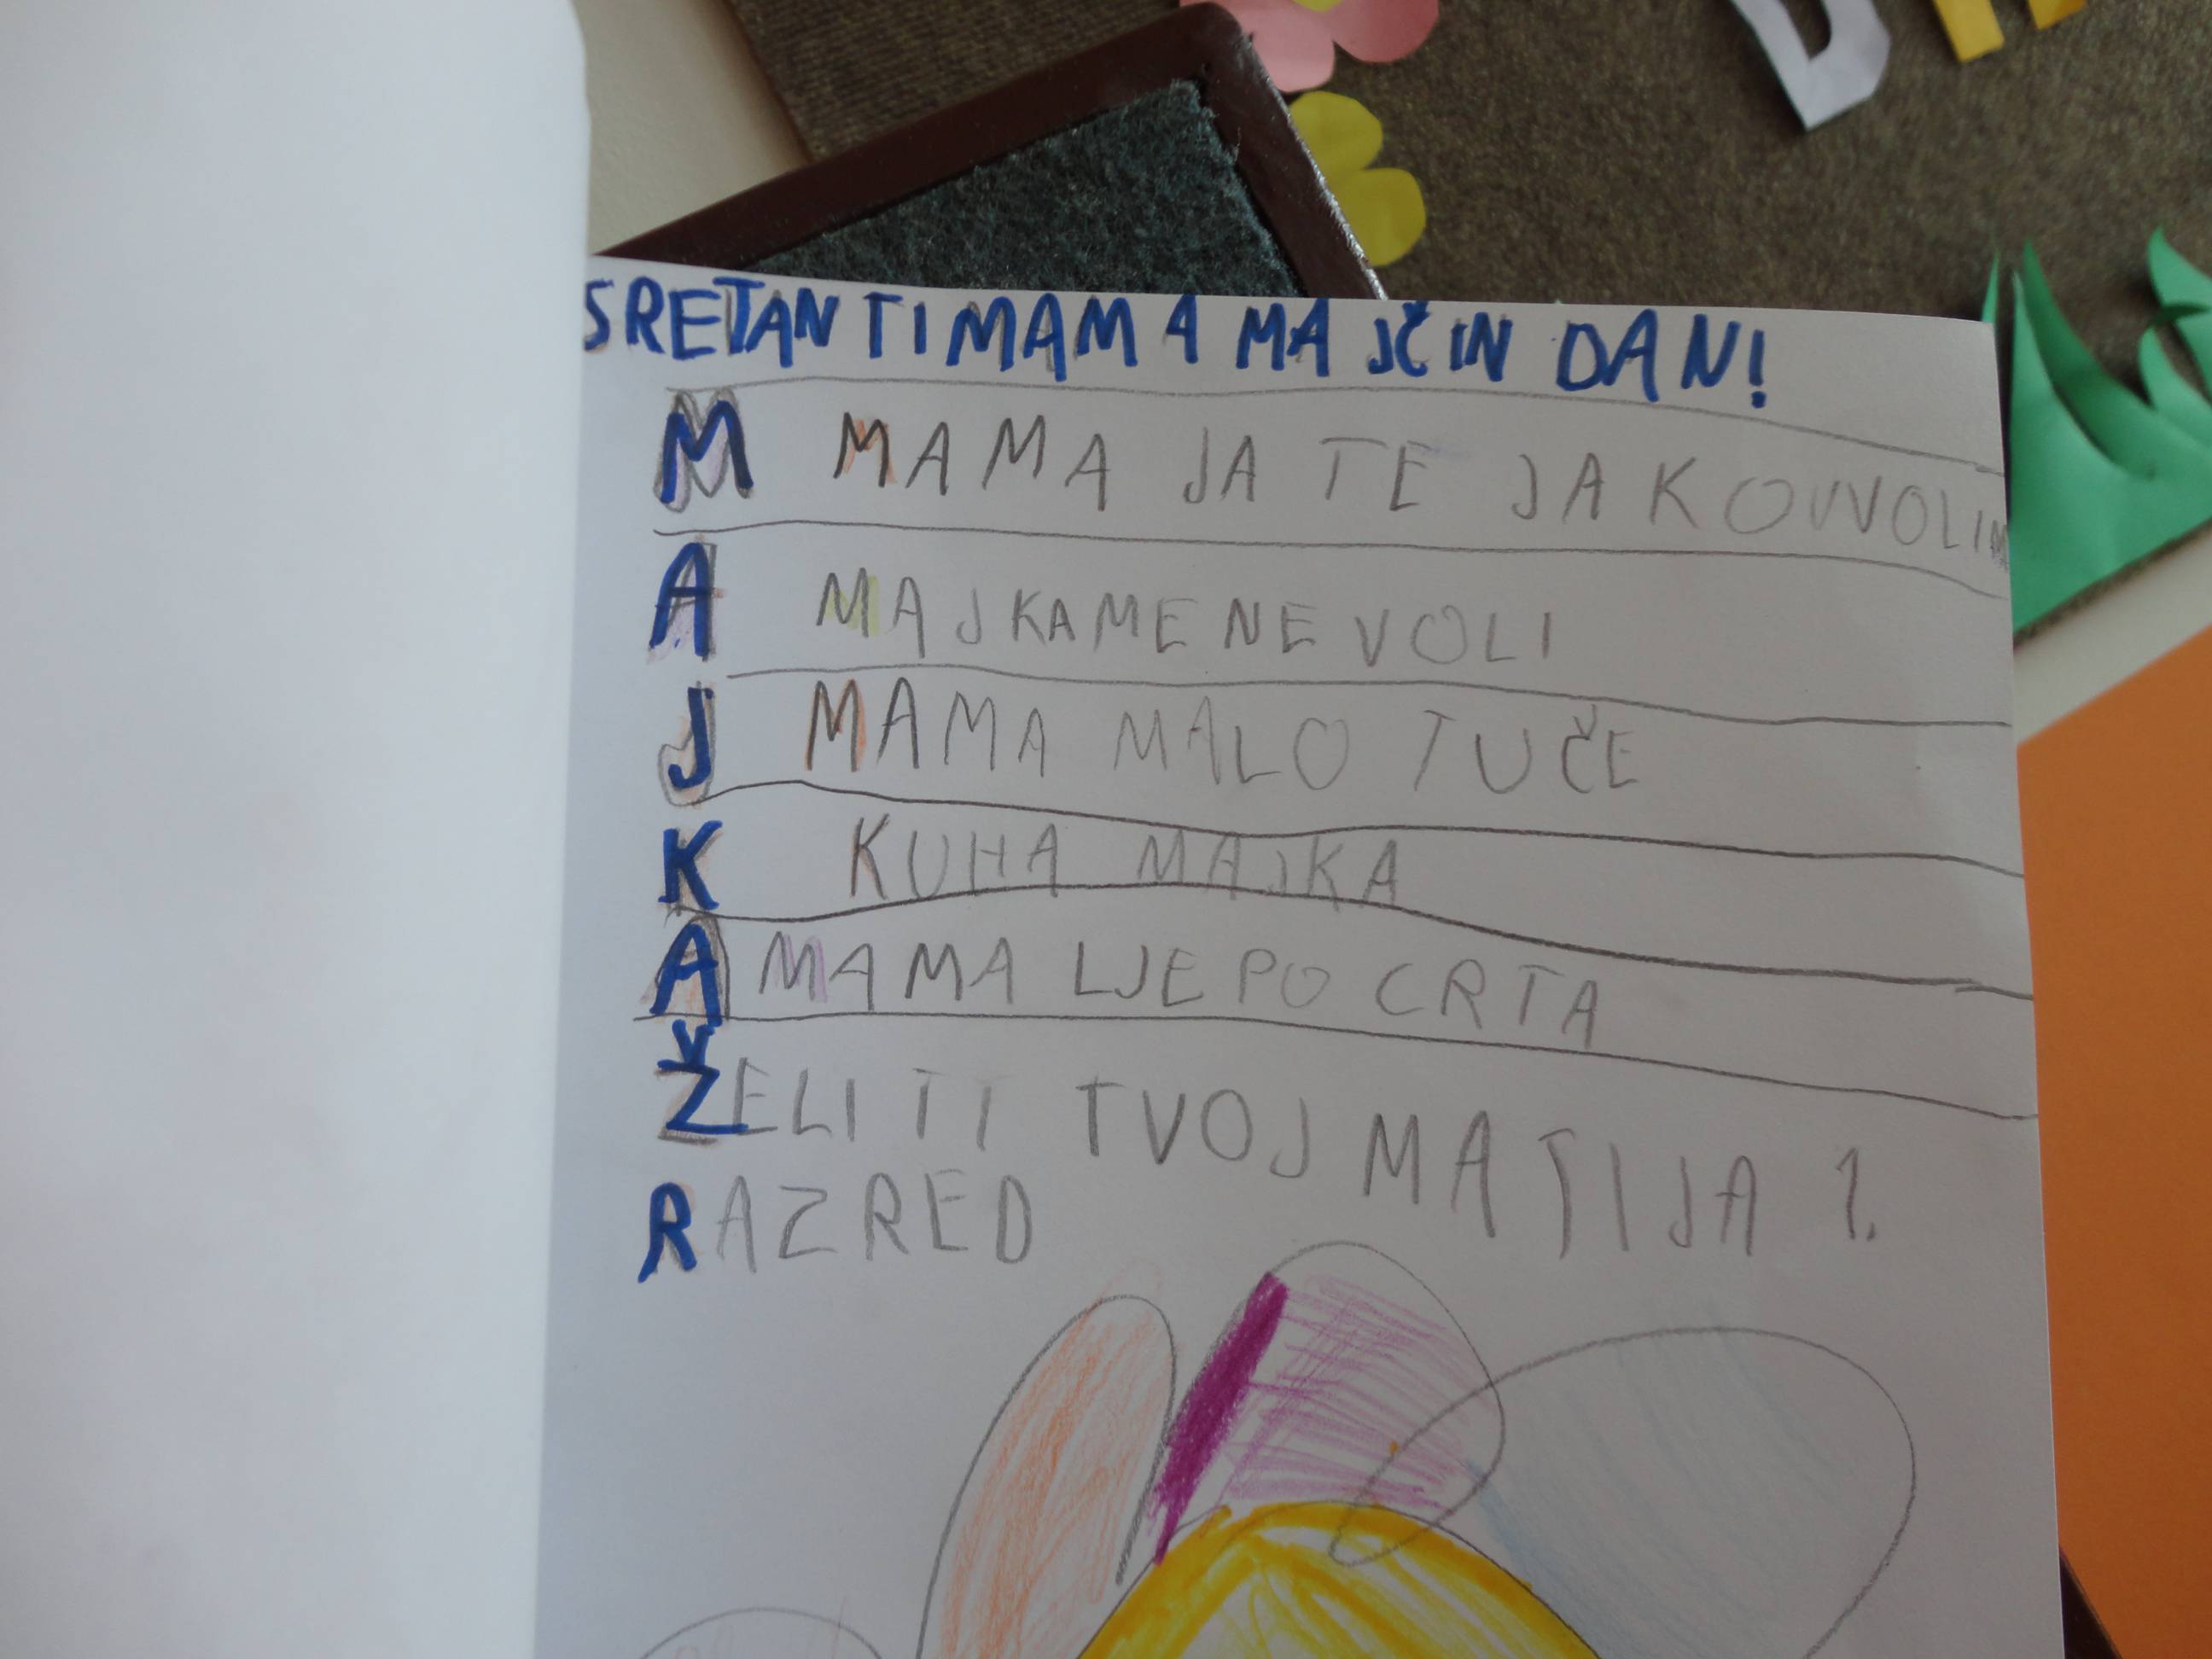 SRETAN TI MAMA MAJČIN DAN!
M MAMA JA TE JAKO VVOLIM
A MAJKA ME NE VOLI
J MAMA MALO TUČE
K KUHA MAJKA
A MAMA LJEPO CRTA
ŽELI TI TVOJ MATIJA 1.
RAZRED